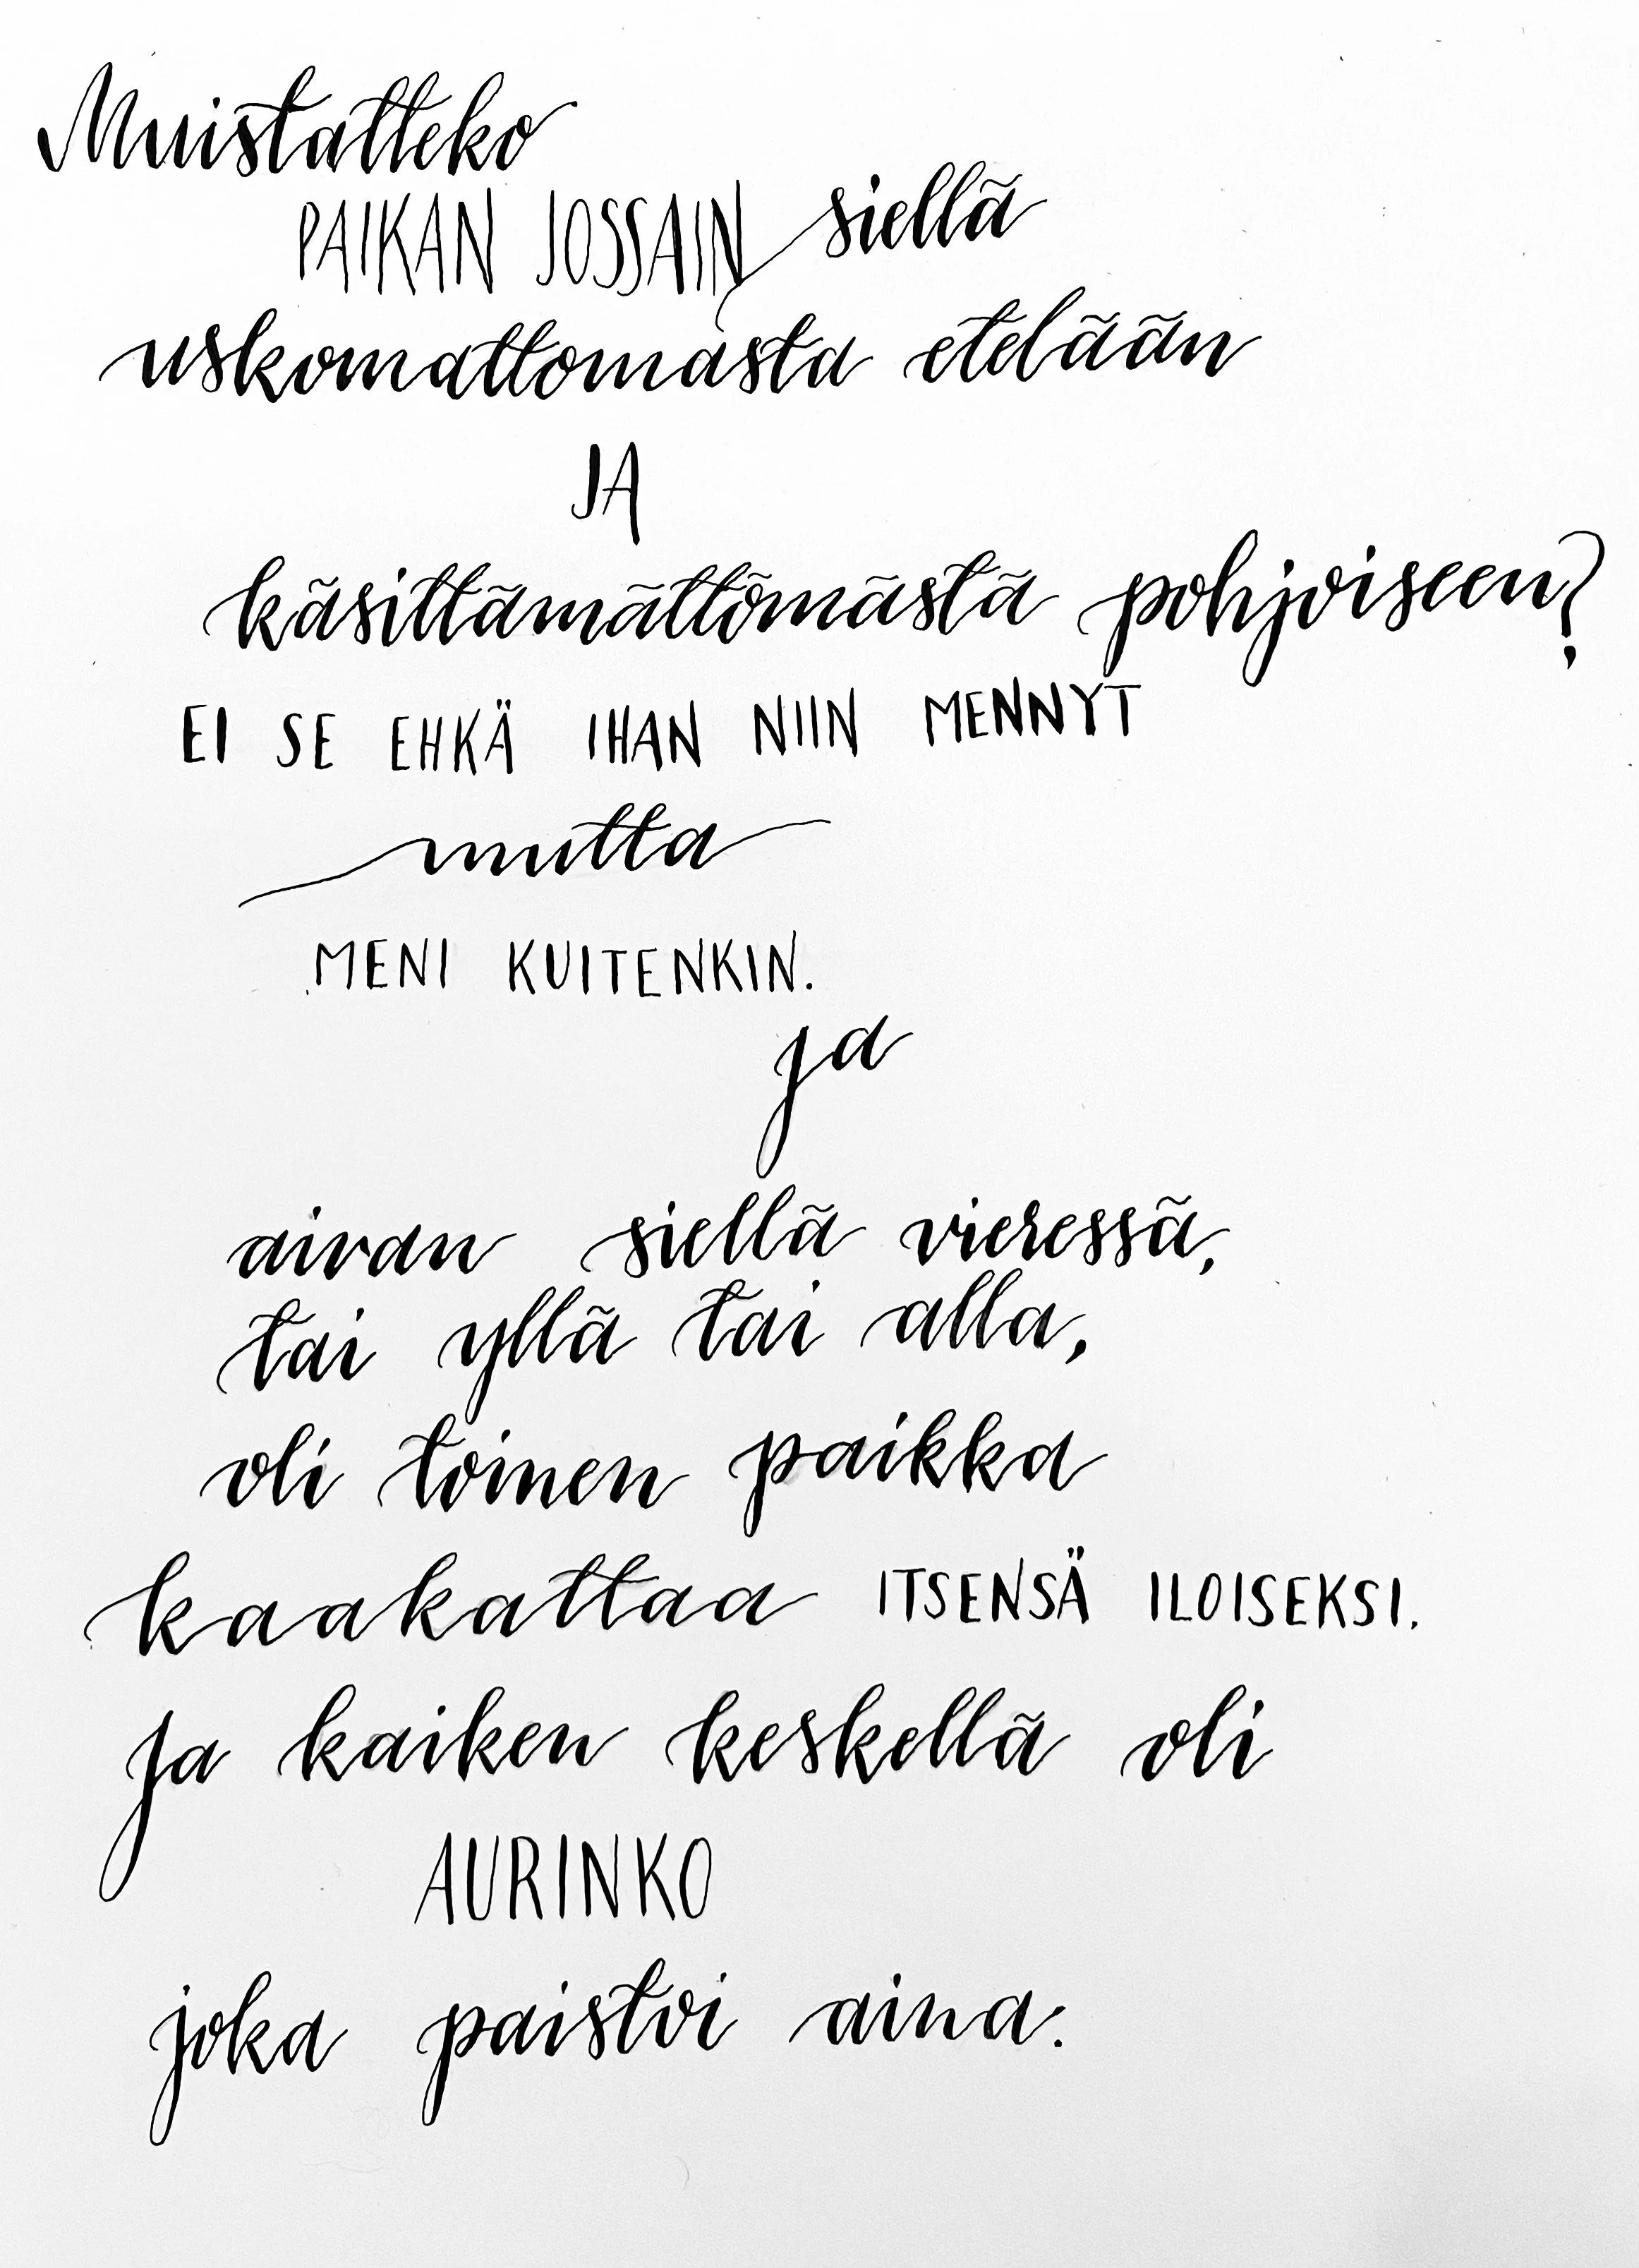 Muistatteko
PAIKAN JOSSAIN siellä
uskomattomasta etelään
JA
käsittämättömästä pohjoiseen?
EI SE EHKÄ IHAN NIIN MENNYT
mutta
MENI KUITENKIN.
ja
aivan siellä vieressä,
tai yllä tai alla,
oli toinen paikka
kaakattaa ITSENSÄ ILOISEKSI.
Ja kaiken keskellä oli
AURINKO
joka paistoi aina.